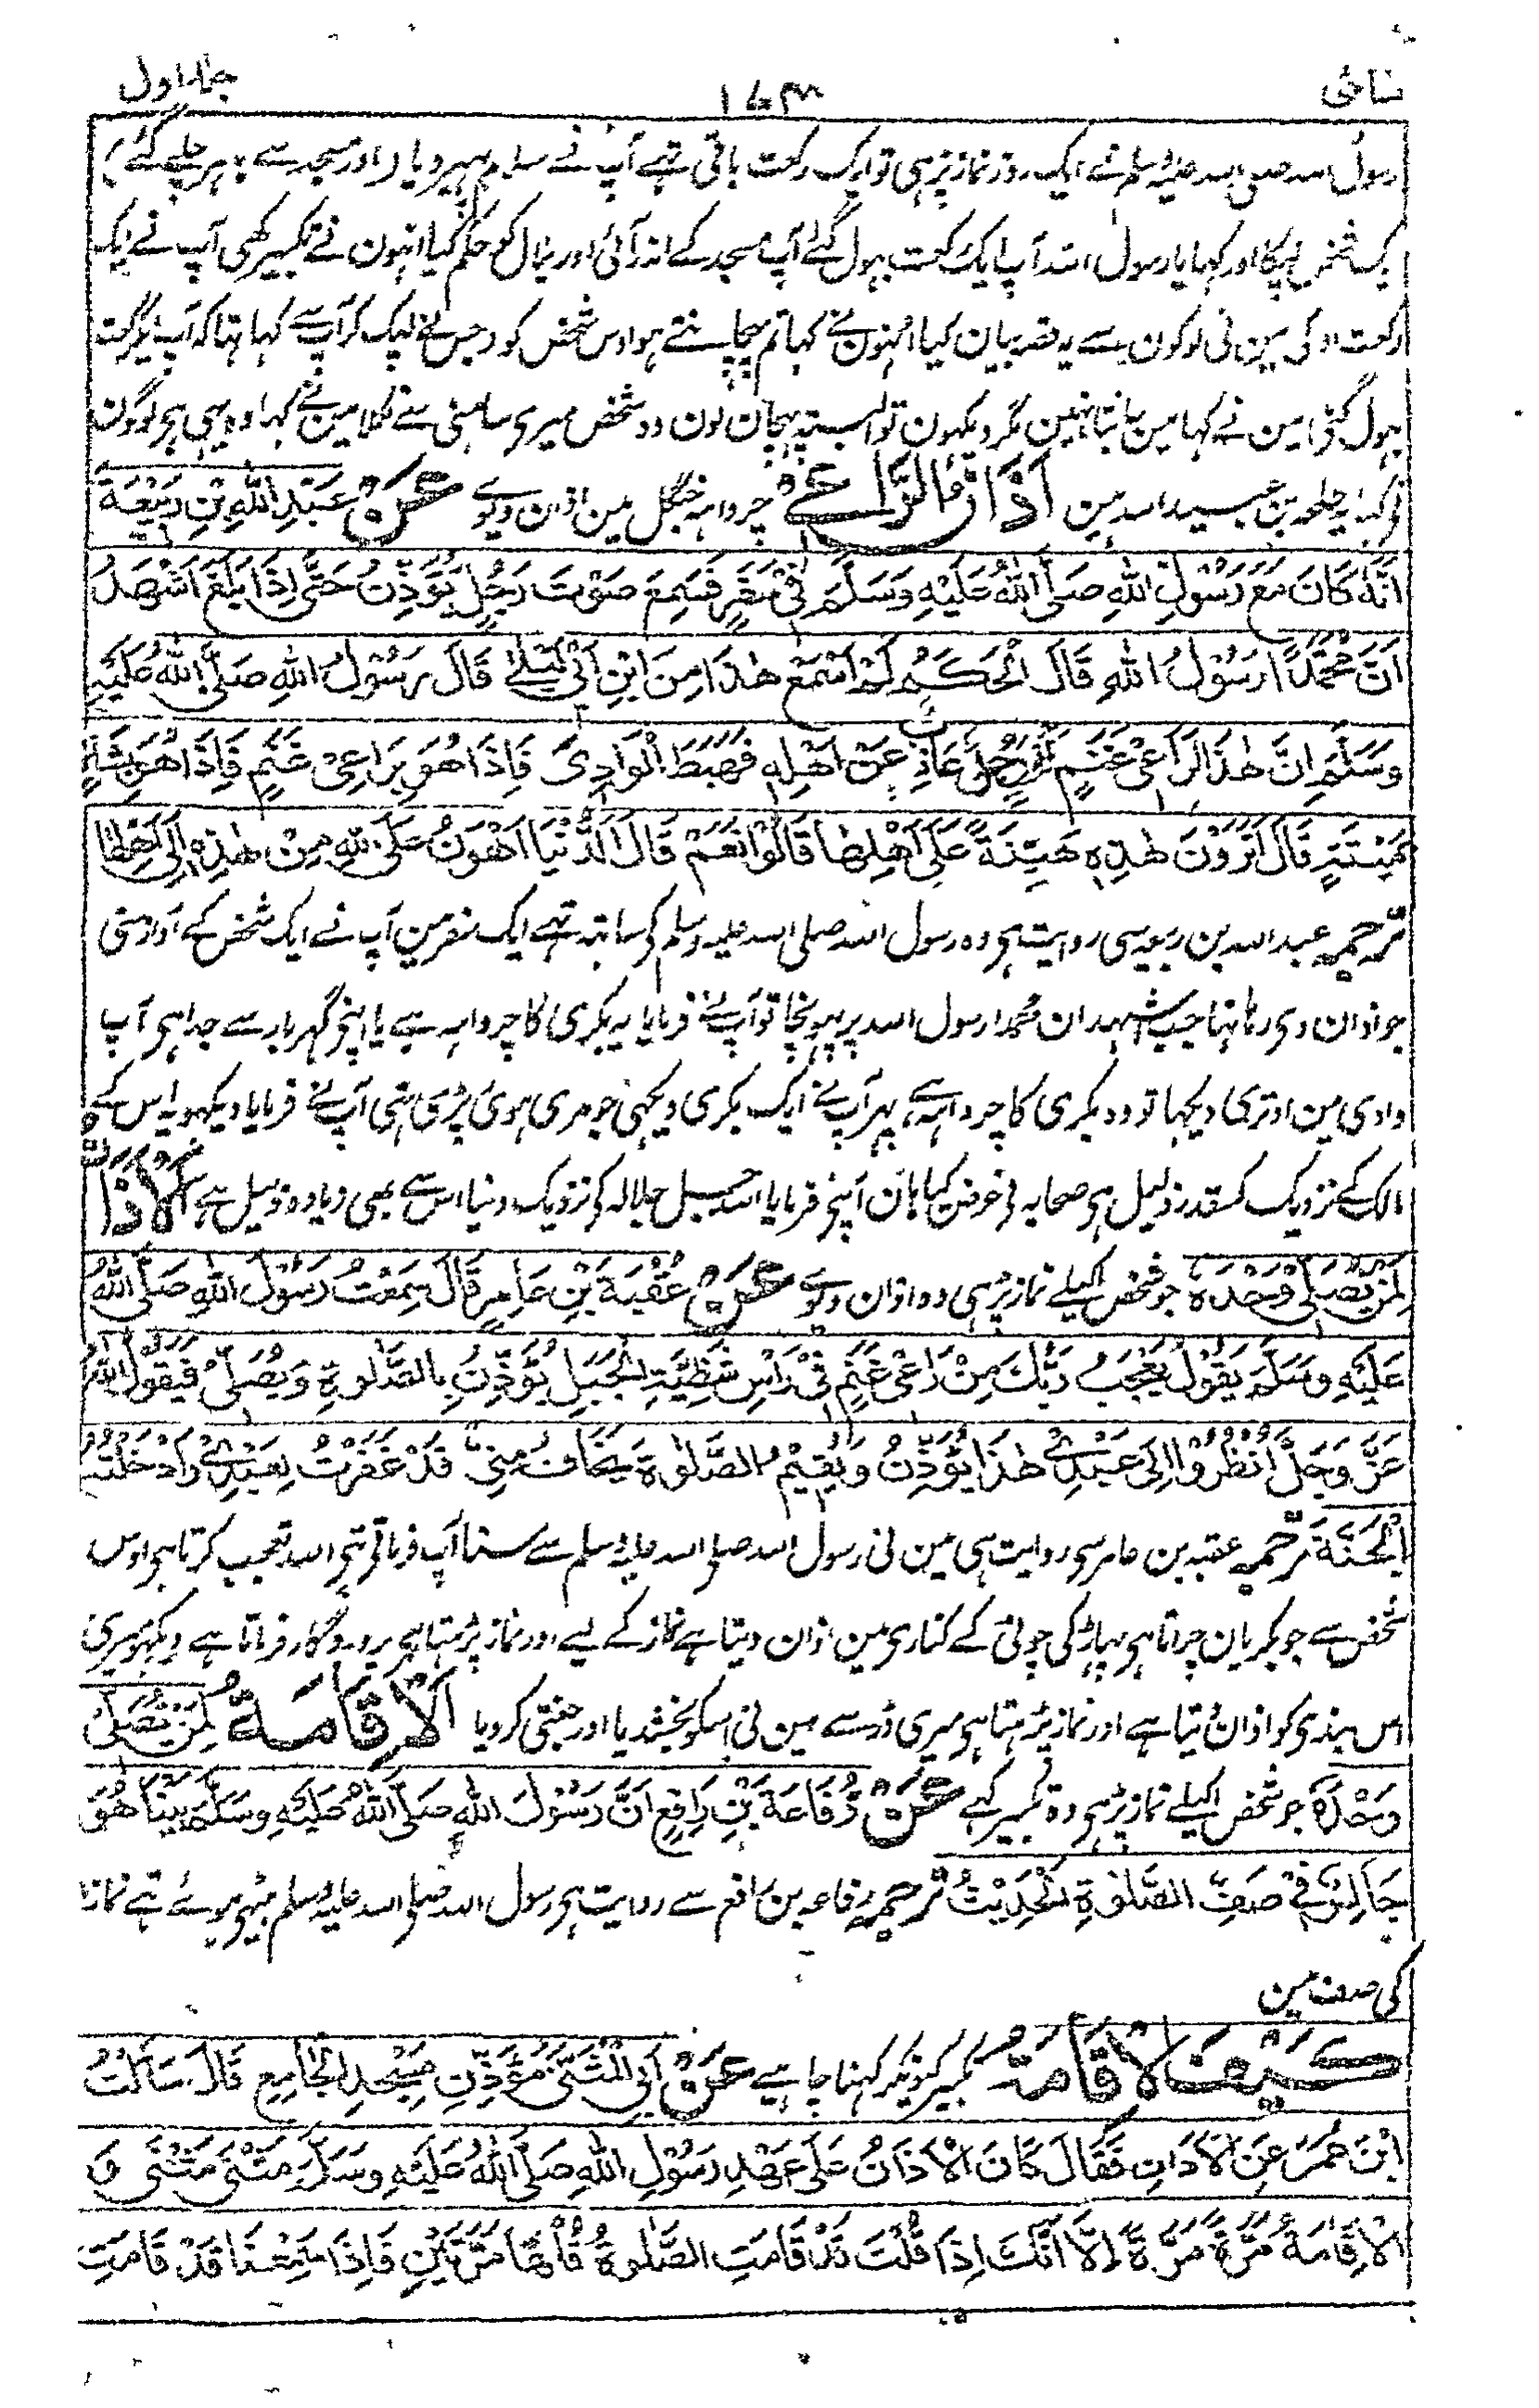 نسائی ۱۷۳ جلد اول
رسول اسد صلی اسد علیہ وسلم نے ایک روز نماز پڑہی تو ایک رکعت باقی تہے آپ نے سلام پہیر دیا (اور مسجد سے باہر چلے گئے)
ایک شخص لپکا اور کہا یا رسول اللہ آپ ایک رکعت بہول گئے آپ مسجد کے اندر آئی اور بلال کو حکم کیا انہون نے تکبیر کہی آپ نے ایک
رکعت ادا کی مین نی لوگون سے یہ قصہ بیان کیا انہون نے کہا تم پہچانتے ہو اوس شخص کو (جس نے لپک کر آپ سے کہا تہا کہ آپ ایک رکعت
بہول گئی) مین نے کہا مین جانتا نہین مگر دیکہون تو البتہ پہچان لون وہ شخص میری سامنی سے نکلا مین نے کہا وہ یہی ہی لوگون
نے کہا یہ طلحہ بن عبید اسد ہین اَذَانُ الرَّاعِیْ چرواہہ جنگل مین اذان دیوے عَنْ عَبْدِ اللهِ بْنِ رَبِیْعَةَ
اَنَّهٗ كَانَ مَعَ رَسُوْلِ اللهِ صَلَّى اللهُ عَلَيْهِ وَسَلَّمَ فِيْ سَفَرٍ فَسَمِعَ صَوْتَ رَجُلٍ يُؤَذِّنُ حَتّٰى اِذَا بَلَغَ اَشْهَدُ
اَنَّ مُحَمَّدًا رَسُوْلُ اللهِ قَالَ الْحَكَمُ لَمْ اَسْمَعْ هٰذَا مِنَ ابْنِ اَبِيْ لَيْلٰى قَالَ رَسُوْلُ اللهِ صَلَّى اللهُ عَلَيْهِ
وَسَلَّمَ اِنَّ هٰذَا لَرَاعِيْ غَنَمٍ اَوْ رَجُلٌ عَازِبٌ عَنْ اَهْلِهٖ فَهَبَطَ الْوَادِيَ فَاِذَا هُوَ بِرَاعِيْ غَنَمٍ فَاِذَا هُوَ بِشَاةٍ
مَيْتَةٍ قَالَ اَتَرَوْنَ هٰذِهٖ هَيِّنَةً عَلٰى اَهْلِهَا قَالُوْا نَعَمْ قَالَ الدُّنْيَا اَهْوَنُ عَلَى اللهِ مِنْ هٰذِهٖ عَلٰى اَهْلِهَا
ترجمہ عبد اسد بن ربیعہ سی روایت ہی وہ رسول اللہ صلی اسد علیہ وسلم کی ساتہہ تہے ایک سفر مین آپ نے ایک شخص کے آواز سنی
جو اذان دی رہا تہا جب اشہد ان محمدا رسول اسد پر پہونچا تو آپ نے فرمایا یہ بکری کا چرواہہ ہے یا اپنی گہر بار سے جدا ہی آپ
وادی مین اوتری دیکہا تو وہ بکری کا چرواہہ ہے، پہر آپ نے ایک بکری دیکہی جو مری ہوئی پڑی تہی آپ نے فرمایا دیکہو یہ اس کے
مالک کے نزدیک کسقدر ذلیل ہی صحابہ نی عرض کیا ہان آپنی فرمایا اللہ جل جلالہ کی نزدیک دنیا اس سے بہی زیادہ ذلیل ہے اَلْاَذَانُ
لِمَنْ يُّصَلِّيْ وَحْدَهٗ جو شخص اکیلے نماز پڑہی وہ اذان دیوے عَنْ عُقْبَةَ بْنِ عَامِرٍ قَالَ سَمِعْتُ رَسُوْلَ اللهِ صَلَّى اللهُ
عَلَيْهِ وَسَلَّمَ يَقُوْلُ يَعْجَبُ رَبُّكَ مِنْ رَاعِيْ غَنَمٍ فِيْ رَاْسِ شَظِيَّةِ الْجَبَلِ يُؤَذِّنُ بِالصَّلٰوةِ وَيُصَلِّيْ فَيَقُوْلُ اللهُ
عَزَّ وَجَلَّ انْظُرُوْا اِلٰى عَبْدِيْ هٰذَا يُؤَذِّنُ وَيُقِيْمُ الصَّلٰوةَ يَخَافُ مِنِّيْ قَدْ غَفَرْتُ لِعَبْدِيْ وَاَدْخَلْتُهُ
الْجَنَّةَ ترجمہ عقبہ بن عامر سی روایت ہی مین نی رسول اسد صلی اسد علیہ وسلم سے سنا آپ فرماتی تہی اسد تعجب کرتا ہی اوس
شخص سے جو بکریان چراتا ہی پہاڑ کی چوٹی کے کناری مین اذان دیتا ہے نماز کے لیے اور نماز پڑہتا ہی پروردگار فرماتا ہے دیکہو میری
اس بندی کو اذان دیتا ہے اور نماز پڑہتا ہی میری ڈر سے مین نی اسکو بخشدیا اور جنتی کر دیا اَلْاِقَامَةُ لِمَنْ يُّصَلِّيْ
وَحْدَهٗ جو شخص اکیلے نماز پڑہی وہ تکبیر کہے عَنْ رُفَاعَةَ بْنِ رَافِعٍ اَنَّ رَسُوْلَ اللهِ صَلَّى اللهُ عَلَيْهِ وَسَلَّمَ بَيْنَا هُوَ
جَالِسٌ فِيْ صَفِّ الصَّلٰوةِ الْحَدِيْثُ ترجمہ رفاعہ بن رافع سے روایت ہی رسول اللہ صلی اسد علیہ وسلم بیٹہی ہوئے تہے نماز
کی صف مین
كَيْفَ الْاِقَامَةُ تکبیر کیونکر کہنا چاہیے عَنْ اَبِي الْمُثَنّٰى مُؤَذِّنِ مَسْجِدِ الْجَامِعِ قَالَ سَاَلْتُ
ابْنَ عُمَرَ عَنِ الْاَذَانِ فَقَالَ كَانَ الْاَذَانُ عَلٰى عَهْدِ رَسُوْلِ اللهِ صَلَّى اللهُ عَلَيْهِ وَسَلَّمَ مَثْنٰى مَثْنٰى وَ
الْاِقَامَةُ مَرَّةً مَرَّةً اِلَّا اَنَّكَ اِذَا قُلْتَ قَدْ قَامَتِ الصَّلٰوةُ قَالَهَا مَرَّتَيْنِ فَاِذَا سَمِعْنَا قَدْ قَامَتِ